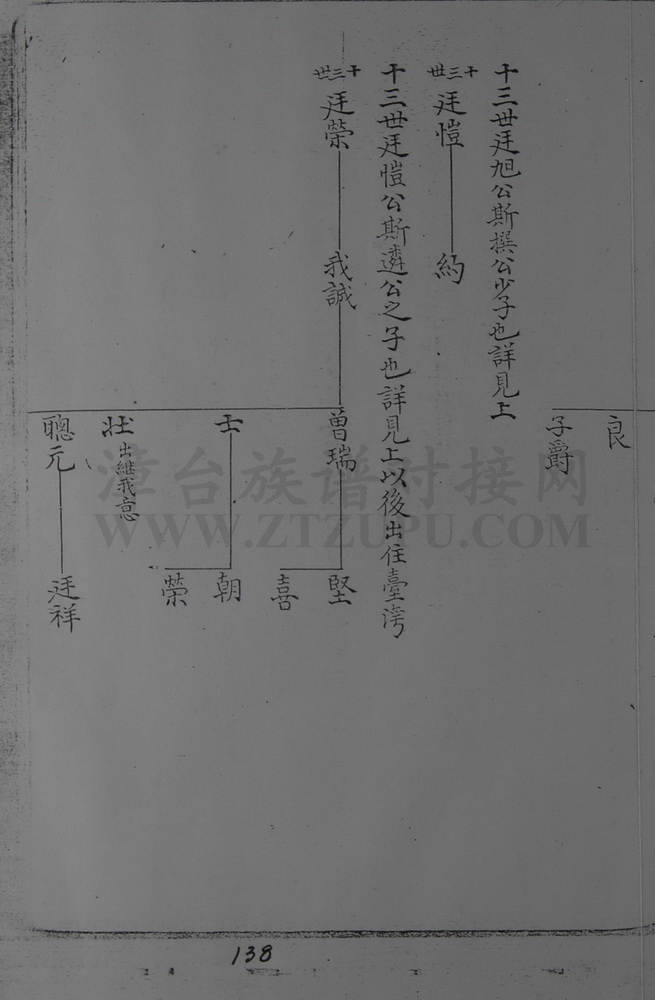 良
子爵
十三世廷旭公斯撰公少子也詳見上
十三世
廷愷
約
十三世廷愷公斯遴公之子也詳見上以後出住臺湾
十三世
廷榮
我誠
曽瑞
堅
喜
士
朝
榮
壯 出継我意
聰元
廷祥
漳台族谱对接网
WWW.ZTZUPU.COM
138